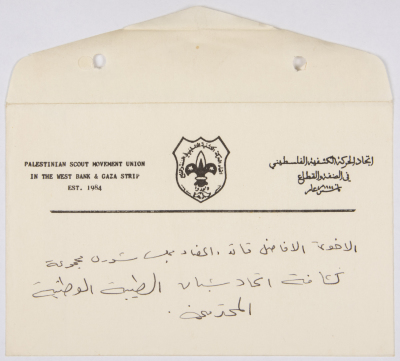 PALESTINIAN SCOUT MOVEMENT UNION
IN THE WEST BANK & GAZA STRIP
EST. 1984
اتحاد الحركة الكشفية الفلسطيني
في الضفة والقطاع
الاخوة الافاضل قائد واعضاء مجلس شورى مجموعة
كشافة اتحاد شبان الطيبة الوطنية
المحترمين.